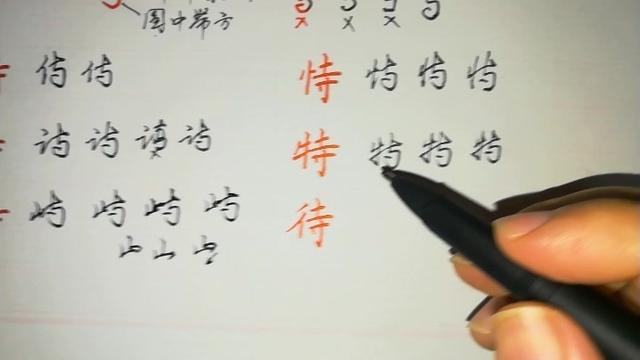 圆中带方
侍 侍 恃 恃 恃 恃
诗 诗 诗 诗 特 特 特 特
峙 峙 峙 峙 待
山 山 山